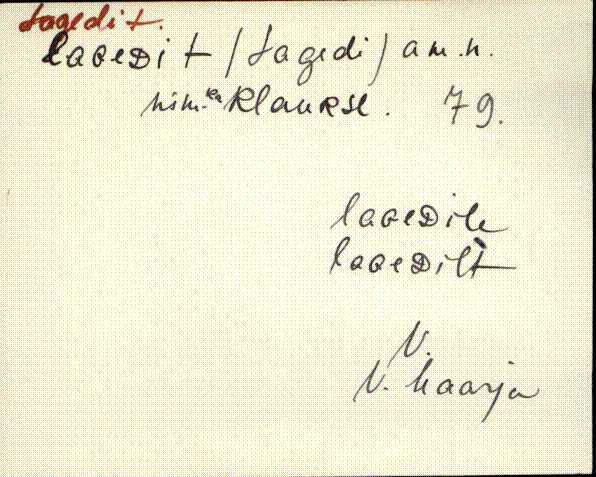 Lagedit.
laɢeᴅit (Lagedi) am.n.
nim. ka klauʀse. 79.
laɢeᴅile
laɢeᴅilt
V.
V. Maarja